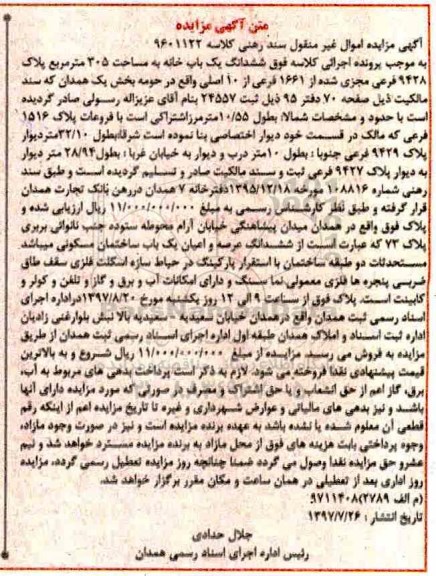 متن آگهی مزایده
آگهی مزایده اموال غیر منقول سند رهنی کلاسه ۹۶۰۱۱۲۲
به موجب پرونده اجرائی کلاسه فوق ششدانگ یک باب خانه به مساحت ۳۰۵ مترمربع پلاک
۹۴۲۸ فرعی مجزی شده از ۱۶۶۱ فرعی از ۱۰ اصلی واقع در حومه بخش یک همدان که سند
مالکیت ذیل صفحه ۷۰ دفتر ۹۵ ذیل ثبت ۲۴۵۵۷ بنام آقای عزیزاله رسولی صادر گردیده
است با حدود و مشخصات شمالا: بطول ۱۰/۵۵مترمرزاشتراکی است با فروعات پلاک ۱۵۱۶
فرعی که مالک در قسمت خود دیوار اختصاصی بنا نموده است شرقا:بطول ۳۲/۱۰متردیوار
پلاک ۹۴۲۹ فرعی جنوبا : بطول ۱۰متر درب و دیوار به خیابان غربا : بطول۲۸/۹۴ متر دیوار
به دیوار پلاک ۹۴۲۷ فرعی ثبت و سند مالکیت صادر و تسلیم گردیده است و طبق سند
رهنی شماره ۱۰۸۸۱۶ مورخه ۱۳۹۵/۱۲/۱۸دفترخانه ۷ همدان دررهن بانک تجارت همدان
قرار گرفته و طبق نظر کارشناس رسمی به مبلغ ۱۱/۰۰۰/۰۰۰/۰۰۰ ریال ارزیابی شده و
پلاک فوق واقع در همدان میدان پیشاهنگی خیابان آرام محوطه ستوده جنب نانوائی بربری
پلاک ۷۳ که عبارت است از ششدانگ عرصه و اعیان یک باب ساختمان مسکونی میباشد
مستحدثات دو طبقه ساختمان با استقرار پارکینگ در حیاط سازه اسکلت فلزی سقف طاق
ضربی پنجره ها فلزی معمولی نما سنگ و دارای امکانات آب و برق و گاز و تلفن و کولر و
کابینت است. پلاک فوق از ساعت ۹ الی ۱۲ روز یکشنبه مورخ ۱۳۹۷/۸/۲۰دراداره اجرای
اسناد رسمی ثبت همدان واقع درهمدان خیابان سعیدیه -سعیدیه بالا نبش بلوارغنی زادیان
اداره ثبت اسناد و املاک همدان طبقه اول اداره اجرای اسناد رسمی ثبت همدان از طریق
مزایده به فروش می رسد. مزایده از مبلغ ۱۱/۰۰۰/۰۰۰/۰۰۰ ریال شروع و به بالاترین
قیمت پیشنهادی نقدا فروخته می شود. لازم به ذکر است پرداخت بدهی های مربوط به آب،
برق، گاز اعم از حق انشعاب و یا حق اشتراک و مصرف در صورتی که مورد مزایده دارای آنها
باشند و نیز بدهی های مالیاتی و عوارض شهرداری و غیره تا تاریخ مزایده اعم از اینکه رقم
قطعی آن معلوم شده یا نشده باشد به عهده برنده مزایده است و نیز در صورت وجود مازاد،
وجوه پرداختی بابت هزینه های فوق از محل مازاد به برنده مزایده مسترد خواهد شد و نیم
عشرو حق مزایده نقدا وصول می گردد ضمنا چنانچه روز مزایده تعطیل رسمی گردد، مزایده
روز اداری بعد از تعطیلی در همان ساعت و مکان مقرر برگزار خواهد شد.
(م الف ۲۷۸۹)۹۷۱۱۴۰۸
تاریخ انتشار : ۱۳۹۷/۷/۲۶
جلال حدادی
رئیس اداره اجرای اسناد رسمی همدان